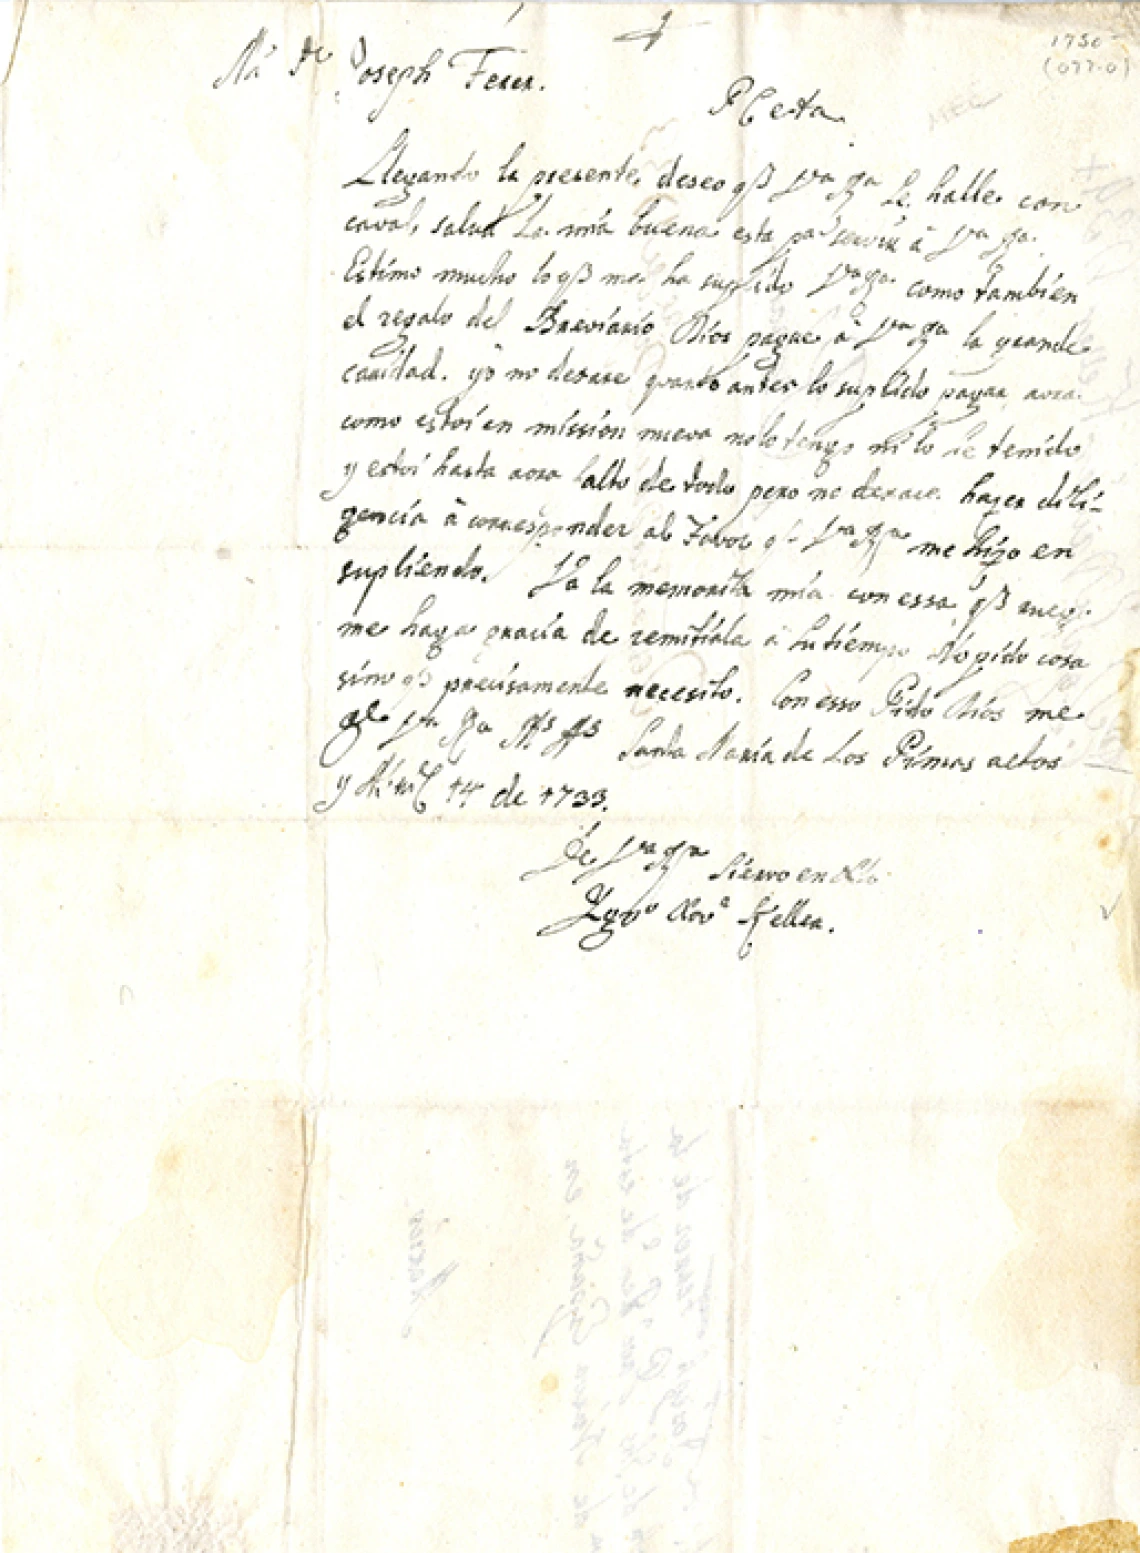 1730
(077-0)
Joseph Ferer.
P C etta
Llegando la presente, deseo q̃ Vᵃ Rᵃ Se halle con
caval, salud La mia buena esta pᵃ servir â Vᵃ Rᵃ.
Estimo mucho lo q̃ me ha suplido Vᵃ Rᵃ como tambien
el regalo del Breviario Dios pague â Vᵃ Rᵃ la grande
caridad. yo no dexare quanto antes lo suplido pagar aora
como estoi en mission nueva no lo tengo ni lo he tenido
y estoi hasta aora falto de todo pero no dexare hazer dili-
gencia â corresponder al Favor q̃ Vᵃ Rᵃ me hizo en
supliendo. Va la memorita mia con essa, q̃
me haga gracia de remitirla â su tiempo Nô pido cosa
sino q̃ precisamente necesito. Con esso Pido Dios me
gᵉ Vᵃ Rᵃ mˢ aˢ Santa Maria de Los Pimas altos
y 14 de 1733.
De Vᵃ Rᵃ Siervo en
Ygnº Xavᵉ Keller.